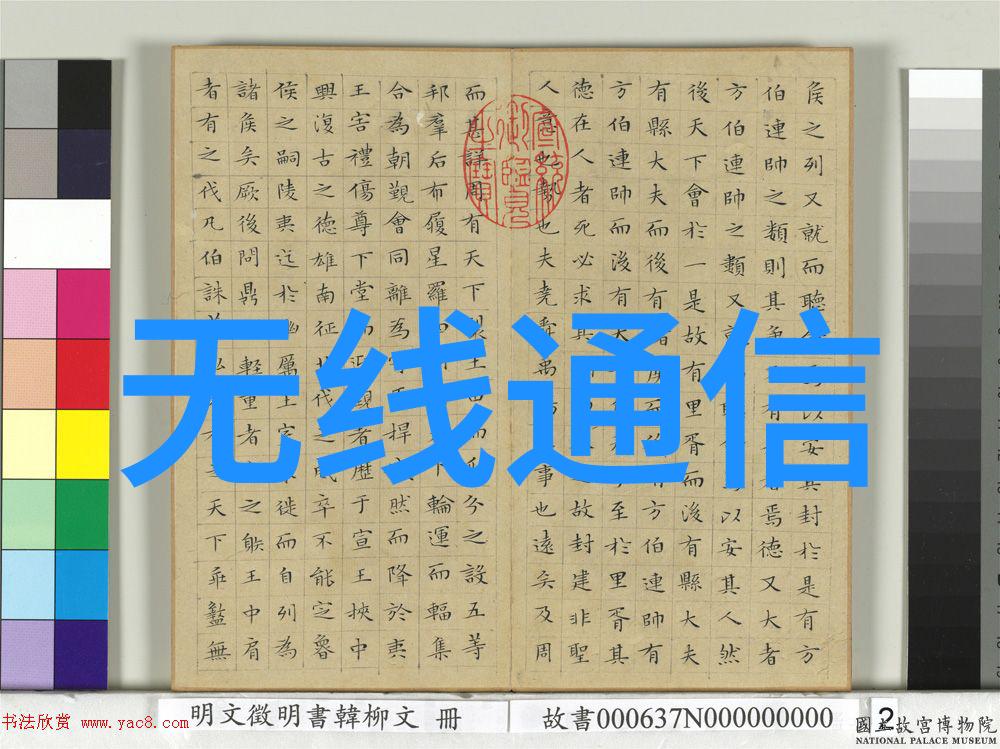 侯之列又就而聽以安其封於是有方
伯連帥之類則其爭有焉德又大者
方伯連帥之類又以安其人然
後天下會於一是故有里胥而後有縣大夫
有縣大夫而後有有方伯連帥有
方伯連帥而後有至於里胥其
德在人者死必求其故封建非聖
人意也勢也夫堯舜禹事也遠矣及周
而甚詳周有天下裂土田而瓜分之設五等
邦羣后布履星羅四下輪運而輻集
合為朝覲會同離為守臣捍然而降於夷
王害禮傷尊下堂而迎覲者歷于宣王挾中
興復古之德雄南征北伐之威卒不能定魯
侯之嗣陵夷迄於幽厲王室徙而自列為
諸侯矣厥後問鼎輕重者之射王中肩
者有之伐凡伯誅天下乖盭無
无线通信
明文徵明書韓柳文 冊
故書000637N000000000
2
書法欣賞 www.yac8.com
國立故宮博物院
NATIONAL PALACE MUSEUM